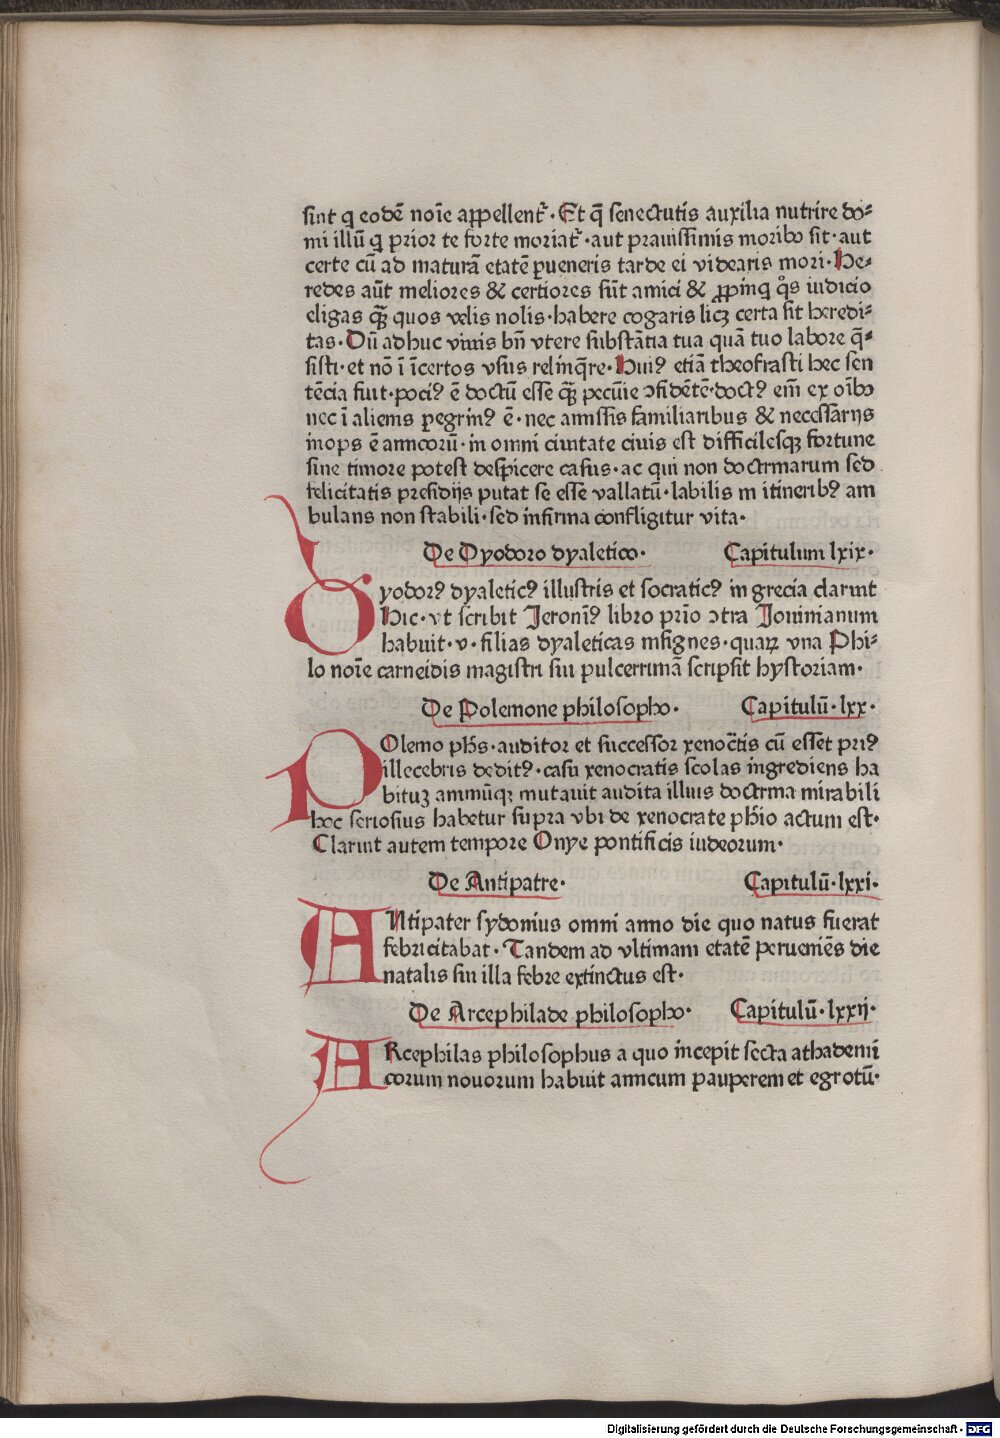 sint q eodē noīe appellent᷑· Et q̄ senectutis auxilia nutrire do⸗
mi illū q prior te forte moriat᷑·aut prauissimis moribꝰ sit·aut
certe cū ad maturā etatē ꝑueneris tarde ei videaris mori· He⸗
redes aūt meliores & certiores sūt amici & ꝓpinq qͦs iudicio
eligas qꝫ̄ quos velis nolis·habere cogaris licꝫ certa sit heredi⸗
tas· Dū adhuc viuis bn̄ vtere substātia tua quā tuo labore q̄⸗
sisti·et nō ī īcertos vsus relinq̄re· Huiꝰ etiā theofrasti hec sen
tēcia fuit·pociꝰ ē doctū esse qꝫ̄ pecūie ↄfidētē·doctꝰ eīn ex oībꝰ
nec ī alienis ꝑegrinꝰ ē·nec amissis familiaribus & necessarijs
inops ē amicorū·in omni ciuitate ciuis est difficilesqꝫ fortune
sine timore potest despicere casus·ac qui non doctrinarum sed
felicitatis presidijs putat se esse vallatū·labilis in itineribꝰ am
bulans non stabili·sed infirma confligitur vita·
De Dyodoro dyaletico· Capitulum lxix·
Dyodorꝰ dyaleticꝰ illustris et socraticꝰ in grecia claruit
Hic·vt scribit Jeronīꝰ libro prīo ↄtra Jouinianum
habuit·v·filias dyaleticas insignes·quaꝝ vna Phi⸗
lo noīe carneidis magistri sui pulcerrimā scripsit hystoriam·
De Polemone philosopho· Capitulū·lxx·
POlemo pħs·auditor et successor xenoc̄tis cū esset priꝰ
illecebris deditꝰ·casu xenocratis scolas ingrediens ha
bituꝫ animūqꝫ mutauit audita illius doctrina mirabili
hec seriosius habetur supra vbi de xenocrate pħio actum est·
Claruit autem tempore Onye pontificis iudeorum·
De Antipatre· Capitulū·lxxi·
ANtipater sydonius omni anno die quo natus fuerat
febricitabat· Tandem ad vltimam etatē perueniēs die
natalis sui illa febre extinctus est·
De Arcephilade philosopho· Capitulū·lxxij·
ARcephilas philosophus a quo incepit secta athademī
corum nouorum habuit amicum pauperem et egrotū·
Digitalisierung gefördert durch die Deutsche Forschungsgemeinschaft - DFG